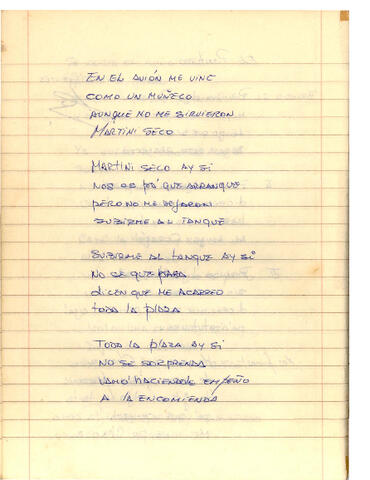 EN EL AVIÓN ME VINE
COMO UN MUÑECO
AUNQUE NO ME SIRVIERON
MARTINI SECO
MARTINI SECO AY SI
NOS DE PA' QUE ARRANQUE
PERO NO ME DEJARON
SUBIRME AL TANQUE
SUBIRME AL TANQUE AY SI
NO SE QUE PASA
DICEN QUE ME ACARREO
TODA LA PLAZA
TODA LA PLAZA AY SI
NO SE SORPRENDA
VAMO' HACIENDOLE EMPEÑO
A LA ENCOMIENDA